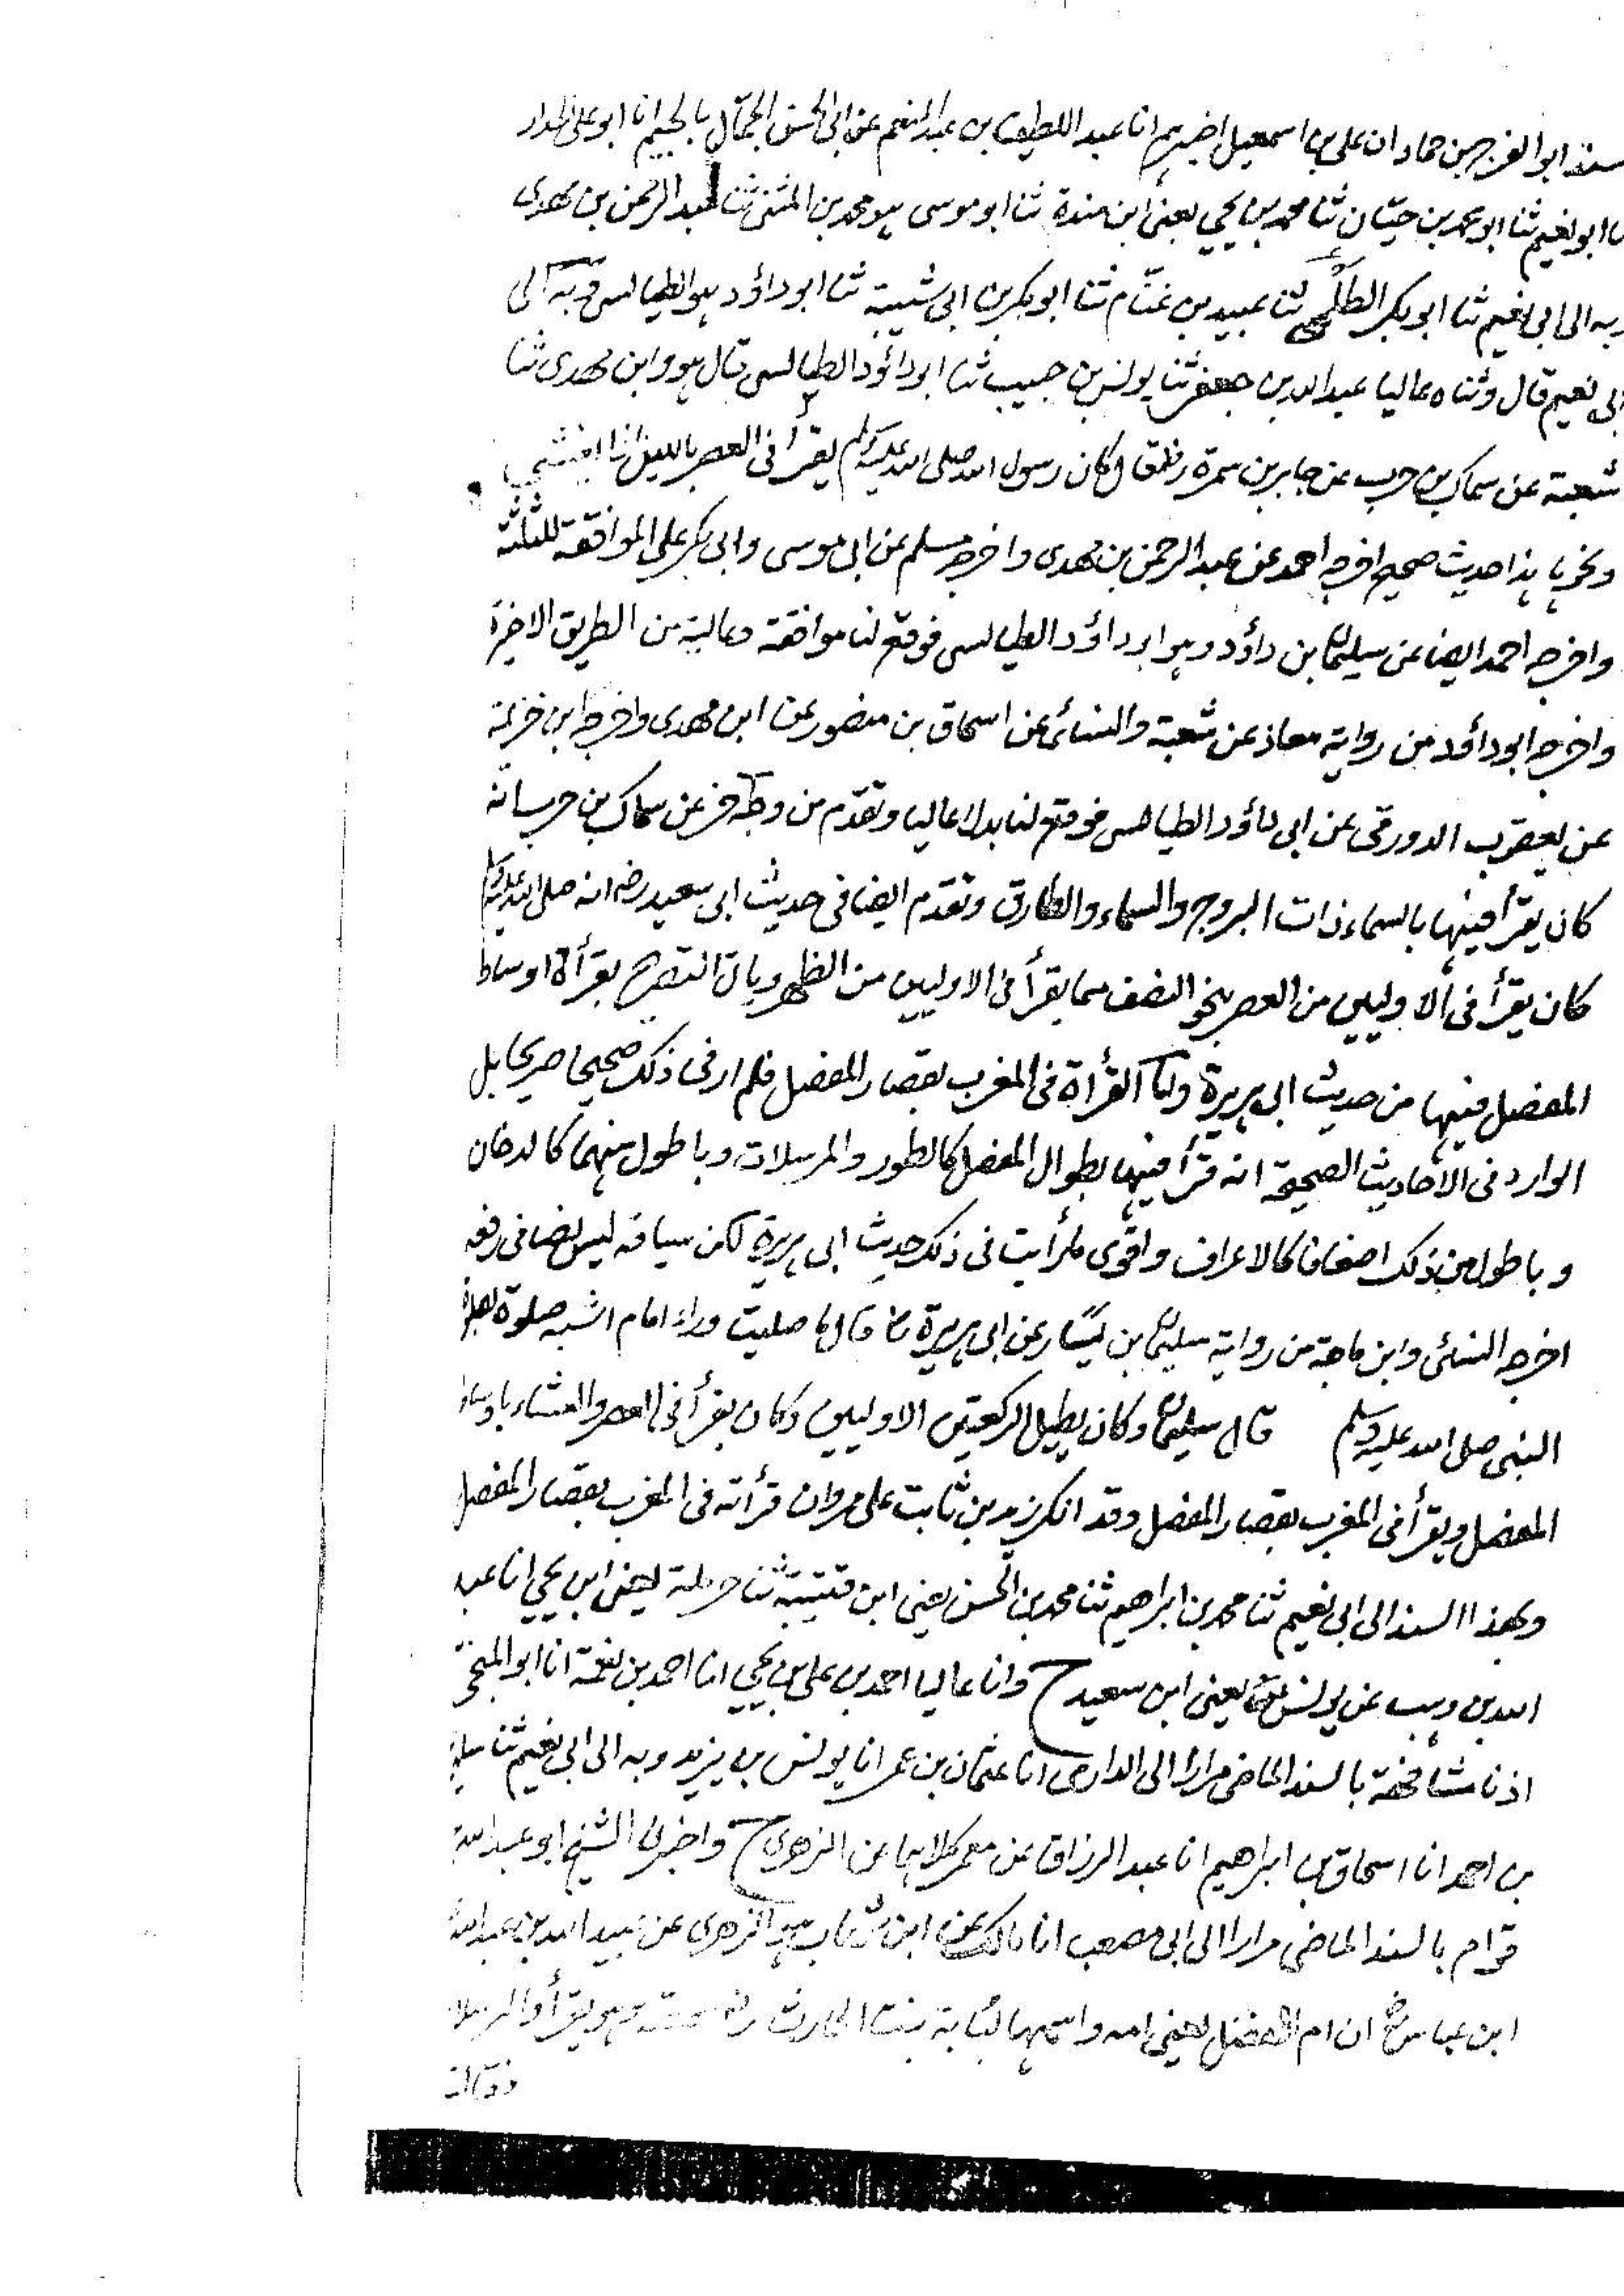 سند ابو الفرج بن حماد ان علی بن اسمعیل اخبرہم انا عبد اللطیف بن عبد المنعم عن ابی الحسن الجمّال بالجیم انا ابو علی الحداد
انا ابو نعیم ثنا ابو محمد بن حیّان ثنا محمد بن یحیی یعنی ابن مندة ثنا ابو موسی ہو محمد بن المثنی ثنا عبد الرحمن بن مهدی
وبہ الی ابی نعیم ثنا ابو بکر الطلحی ثنا عبید بن غنّام ثنا ابو بکر بن ابی شیبة ثنا ابو داؤد ہو الطیالسی وبہ الی
ابی نعیم قال وثناہ عالیا عبد اللہ بن جعفر ثنا یونس بن حبیب ثنا ابو داؤد الطیالسی قال ہو وابن مهدی ثنا
شعبة عن سماک بن حرب عن جابر بن سمرة رض قال کان رسول اللہ صلی اللہ علیہ وسلم یقرأ فی العصر باللیل اذا یغشی
ونحوہا ہذا حدیث صحیح اخرجہ احمد عن عبد الرحمن بن مهدی واخرجہ مسلم عن ابی موسی وابی بکر علی الموافقة للثلثة
واخرجہ احمد ایضا عن سلیمان بن داؤد وہو ابو داؤد الطیالسی فوقع لنا موافقة عالیة من الطریق الاخیرة
واخرجہ ابو داؤد من روایة معاذ عن شعبة والنسائی عن اسحاق بن منصور عن ابن مهدی واخرجہ ابن خزیمة
عن یعقوب الدورقی عن ابی داؤد الطیالسی فوقع لنا بدلا عالیا وتقدّم من وجہ آخر عن سماک بن حرب انہ
کان یقرأ فیہا بالسماء ذات البروج والسماء والطارق وتقدم ایضا فی حدیث ابی سعید رض انہ صلی اللہ علیہ وسلم
کان یقرأ فی الاولیین من العصر نحو النصف مما یقرأ فی الاولیین من الظهر ویاتی التصریح بقرأة اوساط
المفصل فیہا من حدیث ابی ہریرة واما القرأة فی المغرب بقصار المفصل فلم ار فی ذلک صحیحا صریحا بل
الوارد فی الاحادیث الصحیحة انہ قرأ فیہا بطوال المفصل کالطور والمرسلات وباطول منہما کالدخان
وباطول من ذلک اضعافا کالاعراف واقوی مارأیت فی ذلک حدیث ابی ہریرة لکن سیاقہ لیس نصا فی رفعہ
اخرجہ النسائی وابن ماجة من روایة سلیمان بن یسار عن ابی ہریرة رض قال ما صلیت وراء امام اشبہ صلوة بصلوة
النبی صلی اللہ علیہ وسلم قال سلیمان وکان یطیل الرکعتین الاولیین وکان یقرأ فی العصر والعشاء باوساط
المفصل ویقرأ فی المغرب بقصار المفصل وقد انکر زید بن ثابت علی مروان قرأتہ فی المغرب بقصار المفصل
وبهذا السند الی ابی نعیم ثنا محمد بن ابراهیم ثنا محمد بن الحسن یعنی ابن قتیبة ثنا حرملة یعنی ابن یحیی انا عبد
اللہ بن وہب عن یونس یعنی ابن سعید ح وانا عالیا احمد بن علی بن یحیی انا احمد بن نعمة انا ابو المنجی
اذنا مشافهة بالسند الماضی مرارا الی الداری انا عثمان بن عمر انا یونس بن یزید وبہ الی ابی نعیم ثنا سلیمان
بن احمد انا اسحاق بن ابراهیم انا عبد الرزاق عن معمر کلاہما عن الزهری ح واخبرنی الشیخ ابو عبد اللہ
قوام بالسند الماضی مرارا الی ابی مصعب انا مالک عن ابن شهاب ہو الزهری عن عبید اللہ بن عبد اللہ
ابن عباس رض ان ام الفضل یعنی امہ واسمہا لبابة بنت الحارث وہو یقرأ والمرسلات
فقالت